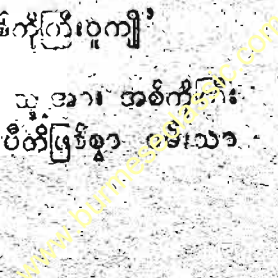 ကိုကြီးဝူကျိ
သူ့အား အစ်ကို
ပီတိဖြစ်စွာ ဝမ်းသာ
www.burmeseclassic.com